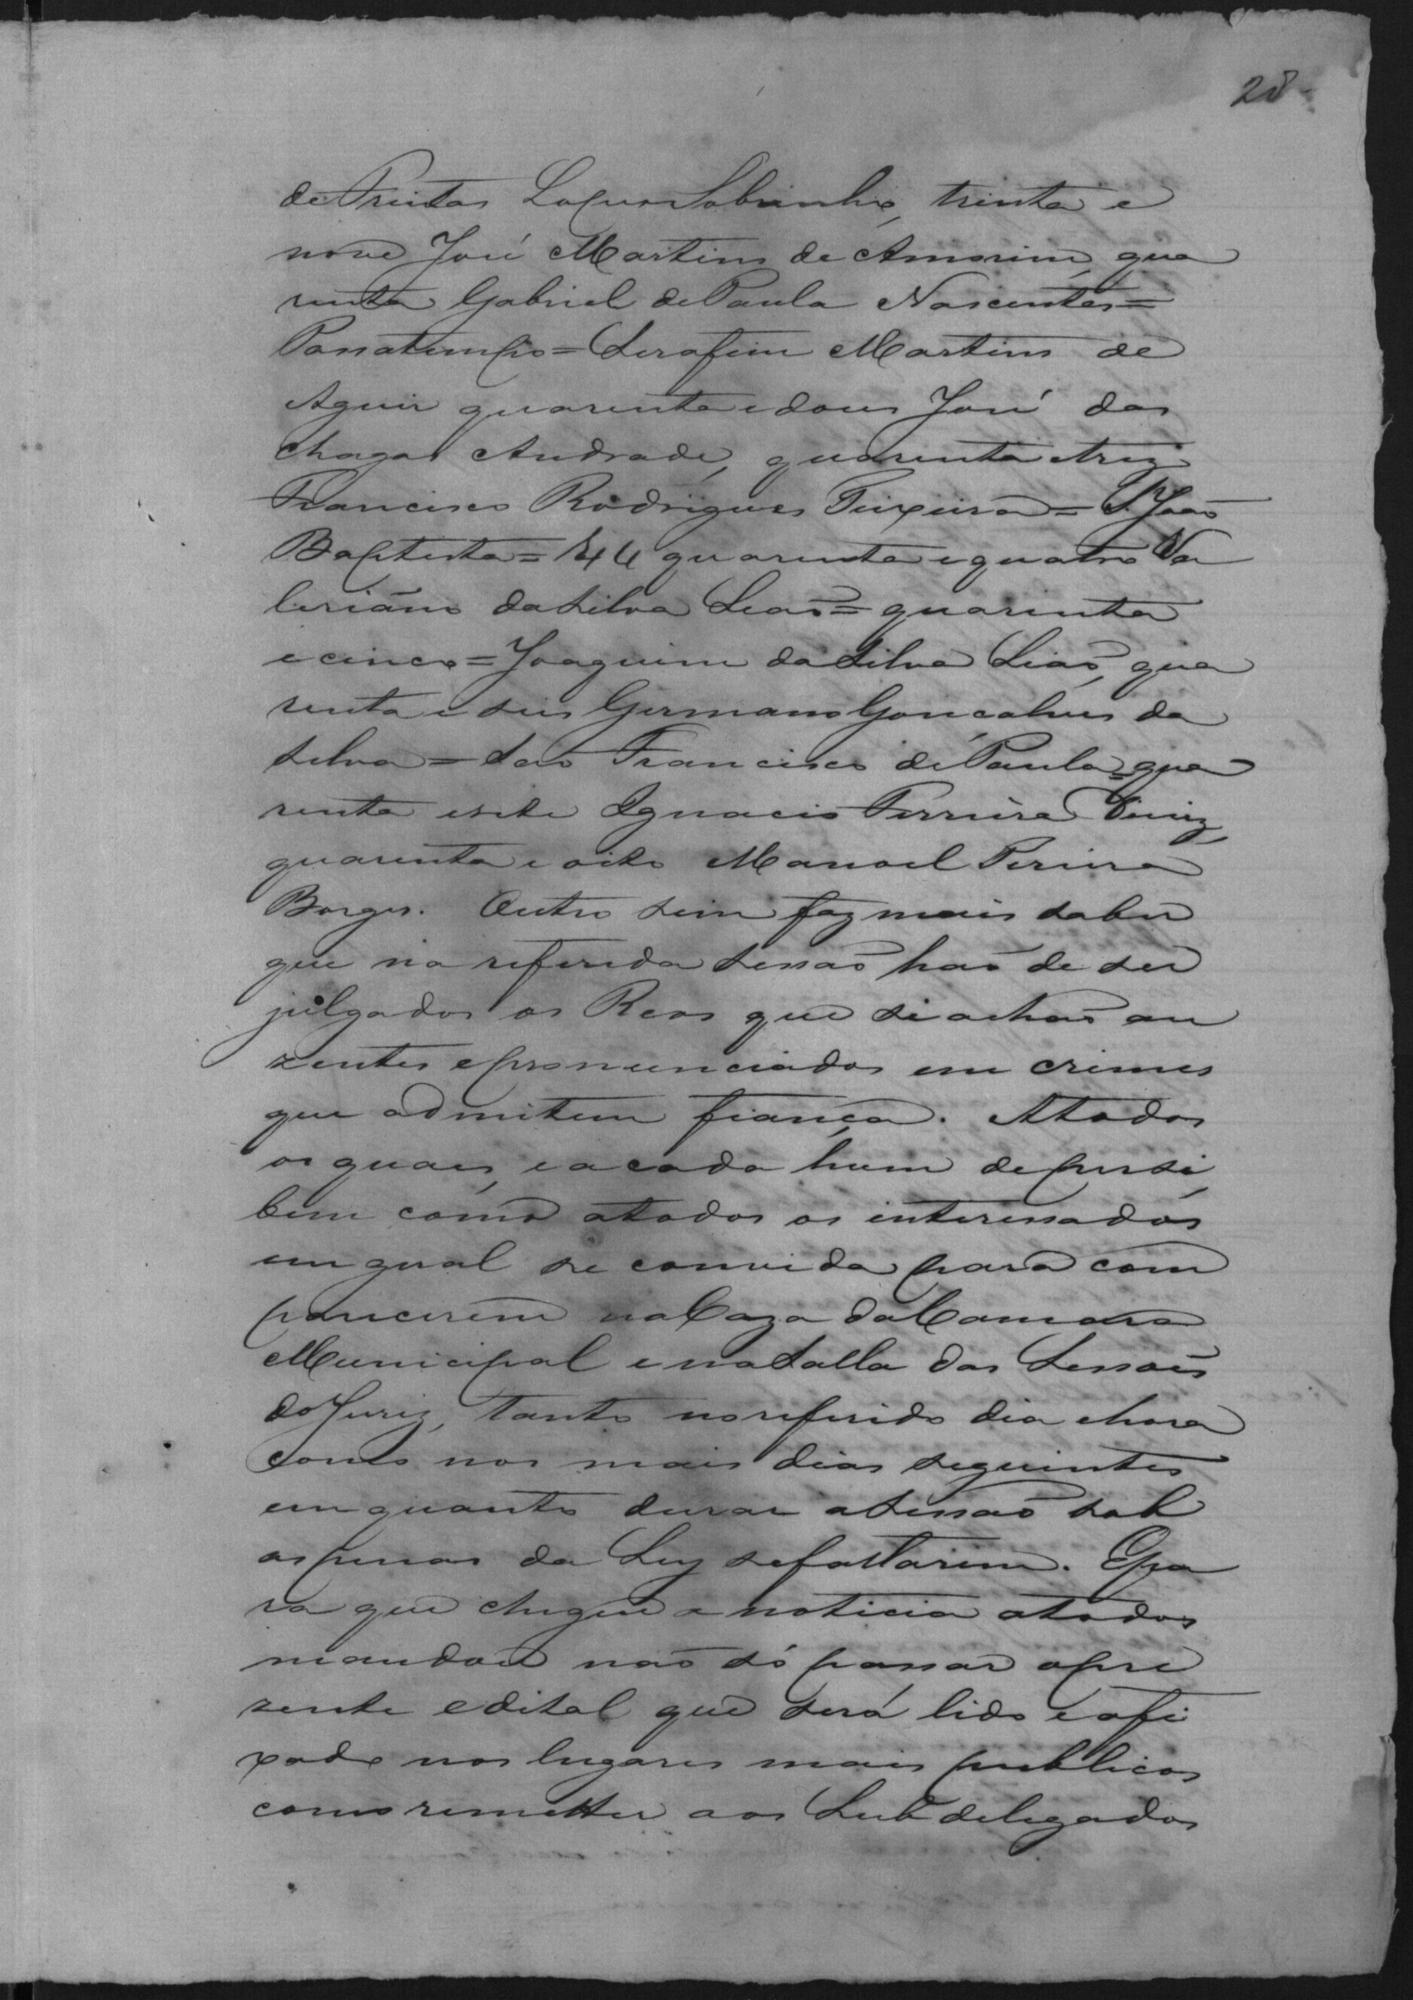 28
de Freitas Lopes Sobrinho, trinta e
nove José Martins de Amorim, qua
renta Gabriel de Paula Nascentes =
Passatempo = Serafim Martins de
Aguir quarenta e dous José das
Chagas Andrade, quarenta e trez
Francisco Rodrigues Teixeira = S. João
Baptista = 44 quarenta e quatro Va
leriano da Silva Leão = quarenta
e cinco = Joaquim da Silva Leão, qua
renta e seis Germano Gonçalves da
Silva = São Francisco de Paula = qua
renta e sete Ignacio Ferreira Diniz,
quarenta e oito Manoel Pereira
Borges. Outro sim faz mais saber
que na referida sessão hão de ser
julgados os Reos que se achão au
zentes e pronunciados em crimes
que admitem fiança. A todos
os quaes, e a cada hum de per si,
bem como a todos os interessados
em geral se convida para com
parecerem na Caza da Camara
Municipal e na Salla das Sessoes
do Jury, tanto no referido dia e hora
como nos mais dias seguintes
em quanto durar a Sessão sob
as penas da Ley se faltarem. E pa
ra que chegue a noticia a todos
mandou não só passar o pre
zente edital que será lido e afi
xado nos lugares mais publicos
como remetter aos Subdelegados